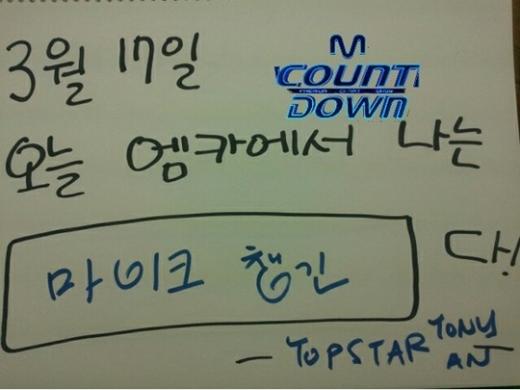 3월 17일
M
COUNT
DOWN
오늘 엠카에서 나는
마이크 챙긴 다!
— TOPSTAR TONY AN